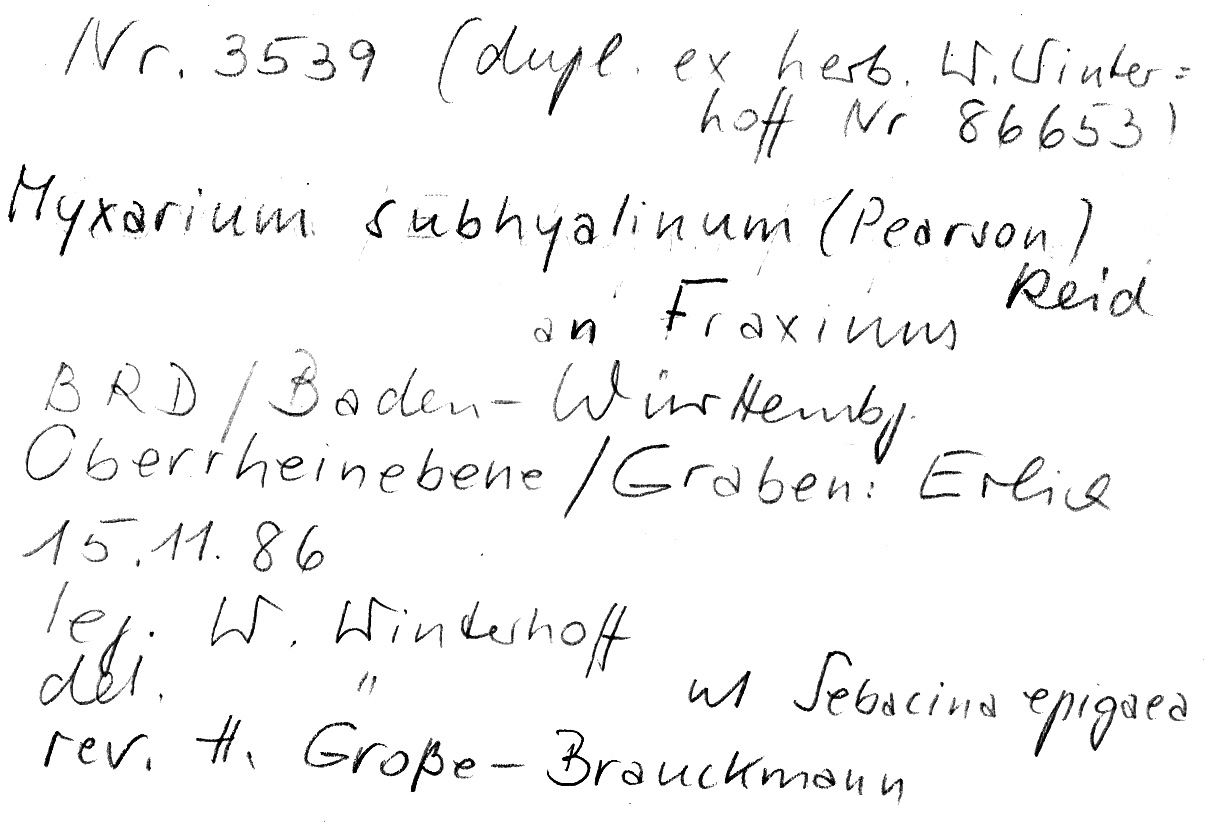 Nr. 3539 (dupl. ex herb. W. Winter=
hoff Nr 86653)
Myxarium subhyalinum (Pearson)
Reid
an Fraxinus
BRD / Baden-Württembg.
Oberrheinebene / Graben: Erlich
15.11.86
leg. W. Winterhoff
det. " ut Sebacina epigaea
rev. H. Große-Brauckmann